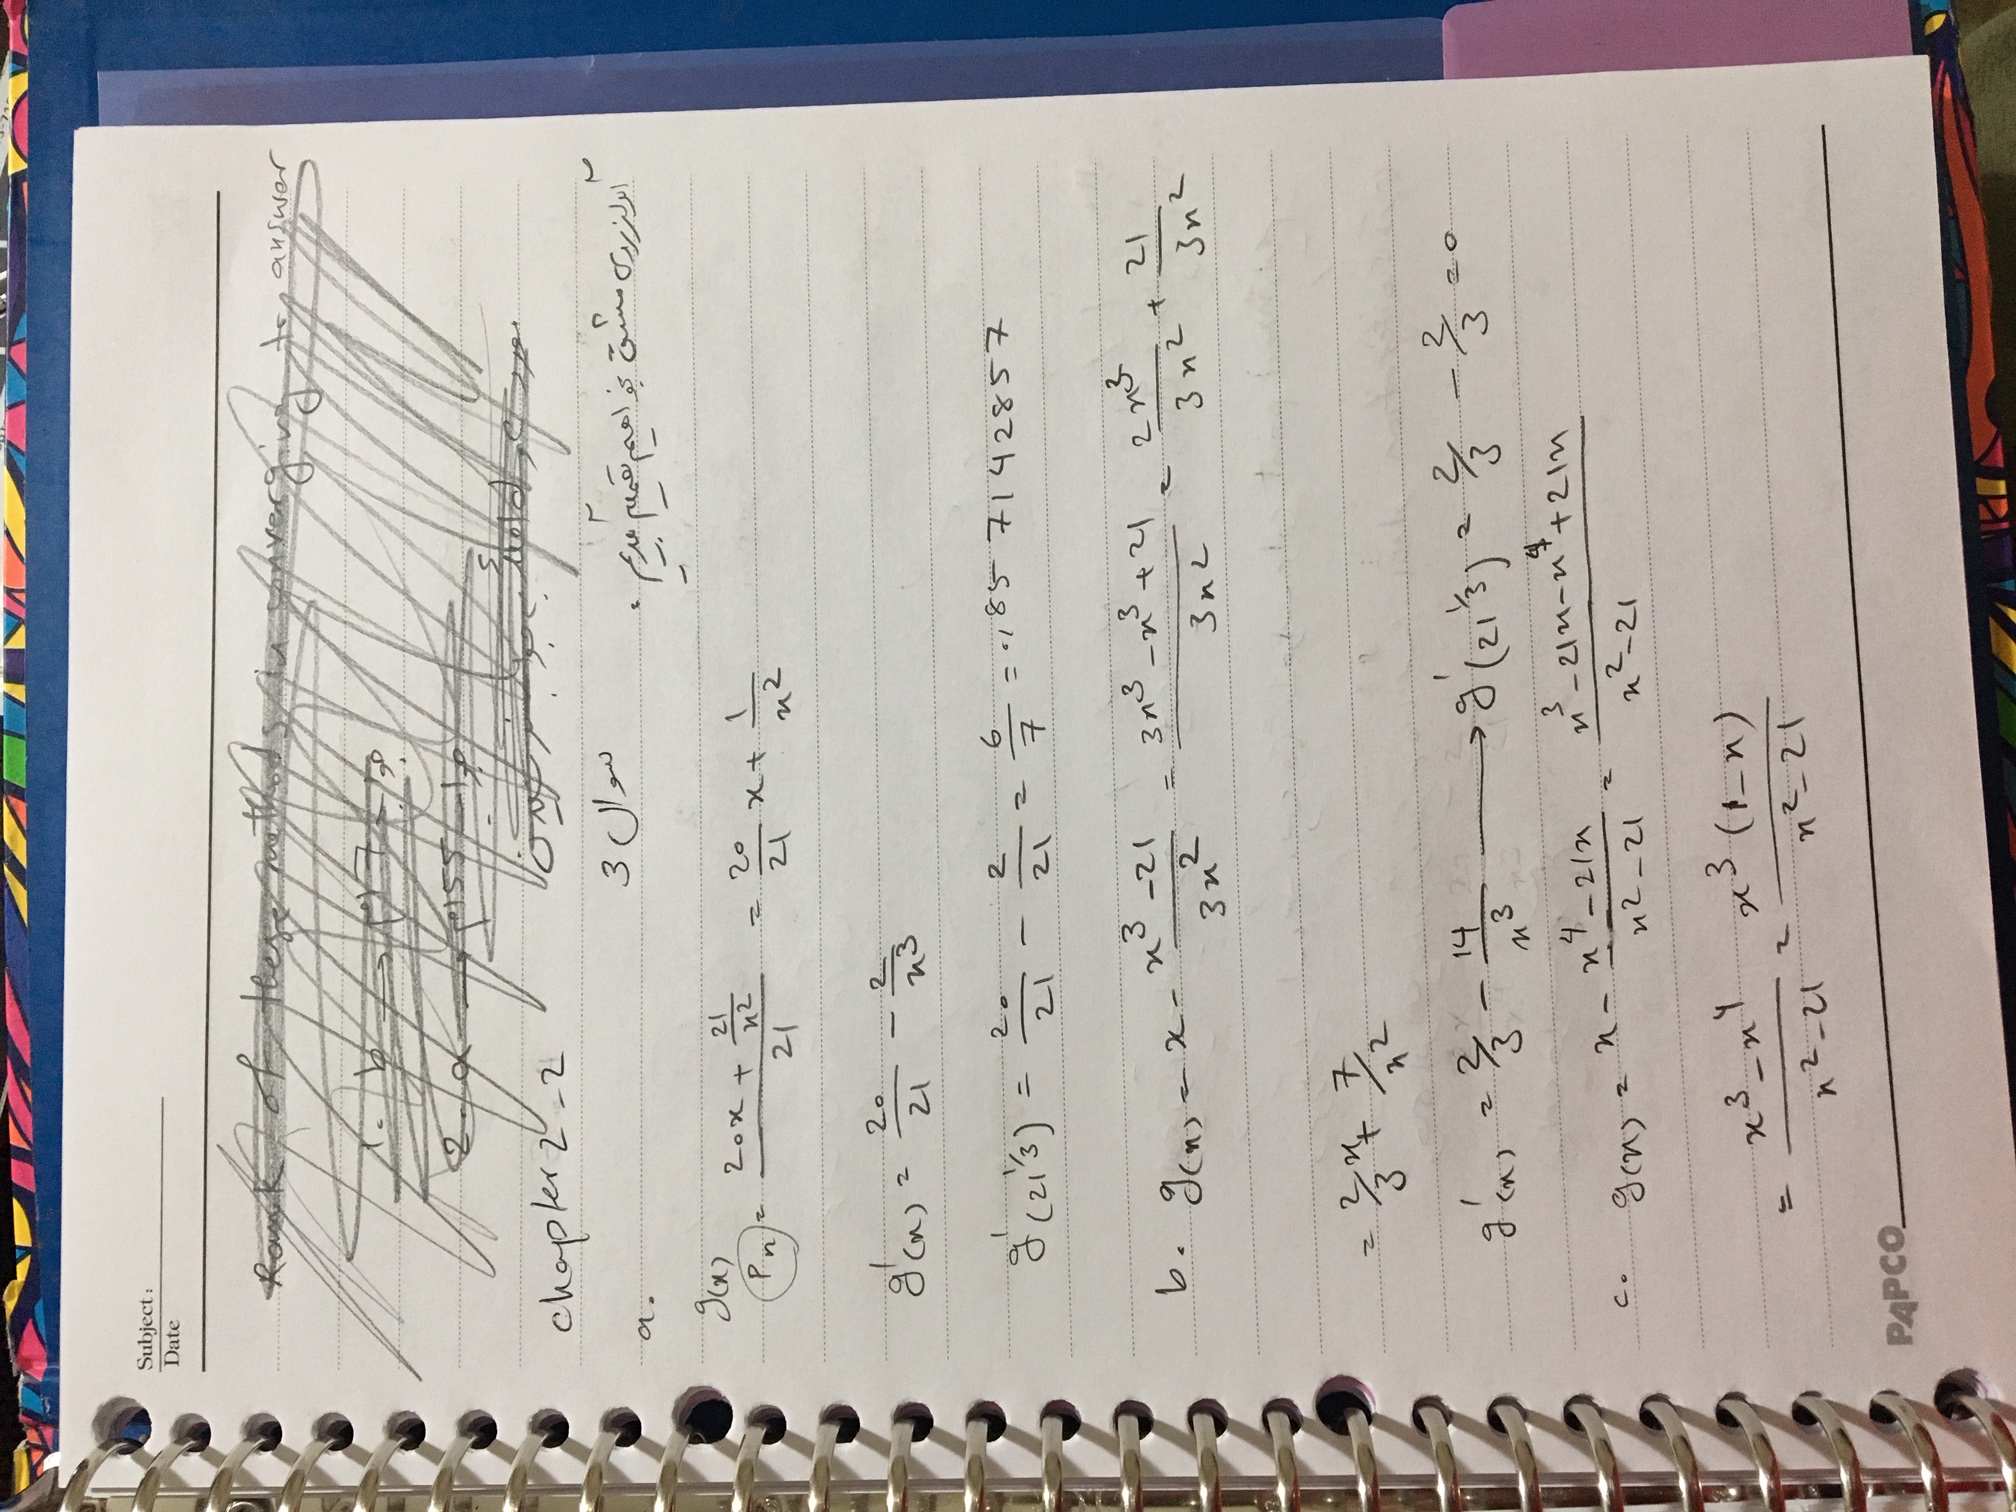 Subject:
Date
Rank of these methods in converging to answer
1. b →
2. a →
chapter 2-2
سوال 3
از روی مشتق بخواهیم تصمیم بگیریم.
a.
g(x)
Pn = (20x + 21/x²)/21 = 20/21 x + 1/x²
g'(x) = 20/21 - 2/x³
g'(21^1/3) = 20/21 - 2/21 = 6/7 = ./857142857
b. g(x) = x - (x³-21)/3x² = (3x³-x³+21)/3x² = 2x³/3x² + 21/3x²
= 2/3 x + 7/x²
g'(x) = 2/3 - 14/x³ → g'(21^1/3) = 2/3 - 2/3 = 0
c. g(x) = x - (x⁴-21x)/(x²-21) = (x³-21x-x⁴+21x)/(x²-21)
= (x³-x⁴)/(x²-21) = x³(1-x)/(x²-21)
PAPCO